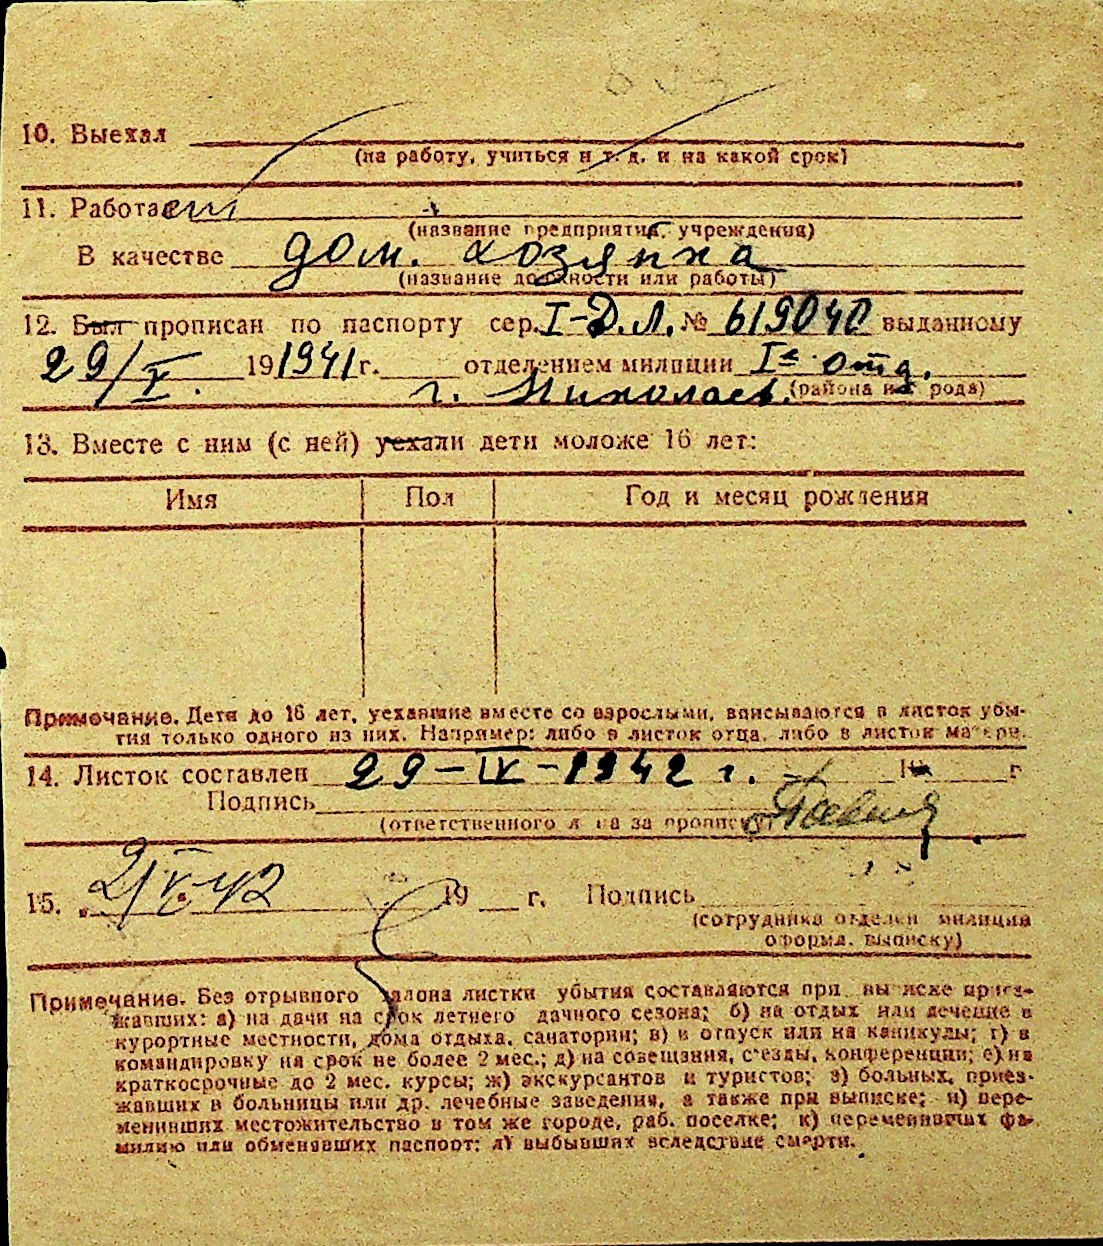 10. Выехал
(на работу, учиться и т. д. и на какой срок)
11. Работает
(название предприятия, учреждения)
В качестве дом. хозяйка
(название должности или работы)
12. Был прописан по паспорту сер. I-Д.Л. № 619040 выданному
29/V. 191941 г. отделением милиции Iе отд.
г. Николаев. (района или города)
13. Вместе с ним (с ней) уехали дети моложе 16 лет:
Имя Пол Год и месяц рождения
Примечание. Дети до 16 лет, уехавшие вместе со взрослыми, вписываются в листок убы-
тия только одного из них. Например: либо в листок отца, либо в листок матери.
14. Листок составлен 29-IV-1942 г. 19 г
Подпись
(ответственного лица за прописку)
15. 2/V-42 19 г. Подпись
(сотрудника отделен милиции
оформл. выписку)
Примечание. Без отрывного талона листки убытия составляются при выписке приез-
жавших: а) на дачи на срок летнего дачного сезона; б) на отдых или лечение в
курортные местности, дома отдыха, санатории; в) в отпуск или на каникулы; г) в
командировку на срок не более 2 мес.; д) на совещания, с'езды, конференции; е) на
краткосрочные до 2 мес. курсы; ж) экскурсантов и туристов; з) больных, приез-
жавших в больницы или др. лечебные заведения, а также при выписке; и) пере-
менивших местожительство в том же городе, раб. поселке; к) переменивших фа-
милию или обменявших паспорт; л) выбывших вследствие смерти.